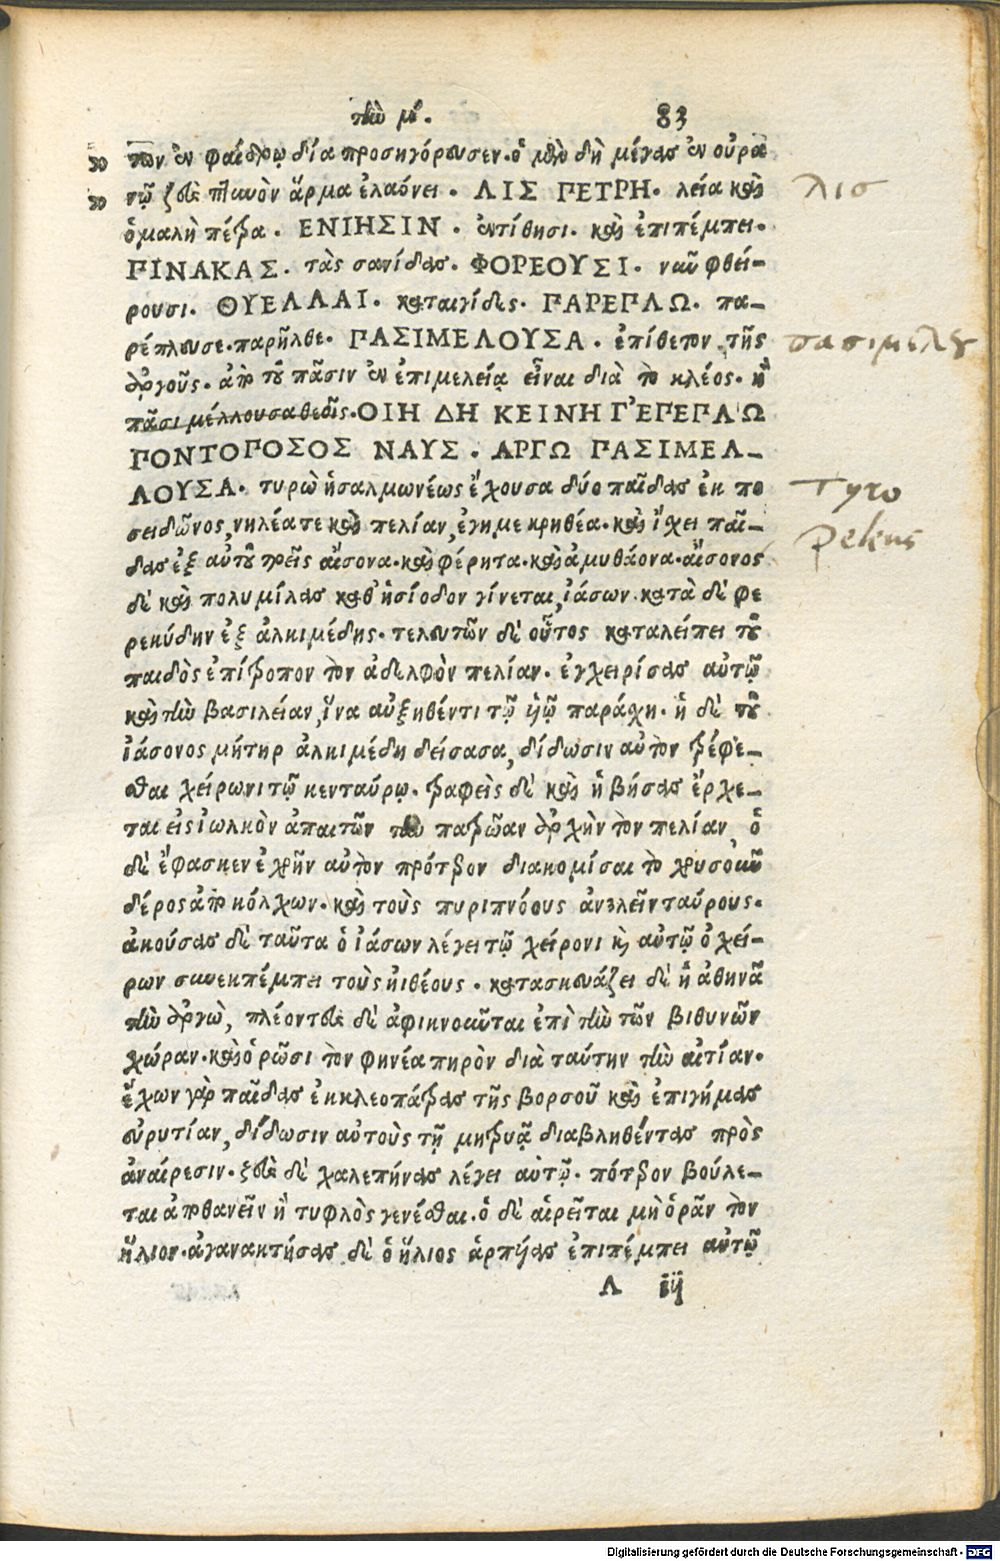 τὴν μ. 83
τον ἐν φαίδρῳ δία προσηγόρευσεν. ὁ μὲν δὴ μέγας ἐν οὐρα
νῷ ζεὺς πτηνὸν ἅρμα ἐλαύνει. ΛΙΣ ΠΕΤΡΗ. λεία καὶ
ὁμαλὴ πέτρα. ΕΝΙΗΣΙΝ. ἐντίθησι. καὶ ἐπιπέμπει.
ΠΙΝΑΚΑΣ. τὰς σανίδας. ΦΟΡΕΟΥΣΙ. ναῦ φθεί-
ρουσι. ΘΥΕΛΛΑΙ. καταιγίδες. ΠΑΡΕΠΛΩ. πα-
ρέπλευσε. παρῆλθε. ΠΑΣΙΜΕΛΟΥΣΑ. ἐπίθετον τῆς
ἀργοῦς. ἀπὸ τοῦ πᾶσιν ἐν ἐπιμελείᾳ εἶναι διὰ τὸ κλέος. ἢ
πᾶσι μέλλουσα θεοῖς. ΟΙΗ ΔΗ ΚΕΙΝΗ Γ'ΕΠΕΠΛΩ
ΠΟΝΤΟΠΟΣΟΣ ΝΑΥΣ. ΑΡΓΩ ΠΑΣΙΜΕΛ-
ΛΟΥΣΑ. τυρὼ ἡ σαλμωνέως ἔχουσα δύο παῖδας ἐκ πο
σειδῶνος, νηλέα τε καὶ πελίαν, ἔγημε κρηθέα. καὶ ἴχει παῖ-
δας ἐξ αὐτοῦ τρεῖς αἴσονα. καὶ φέρητα. καὶ ἀμυθάονα. αἴσονος
δὲ καὶ πολυμίλας καθ' ἡσίοδον γίνεται, ἰάσων. κατὰ δὲ φε
ρεκύδην ἐξ ἀλκιμέδης. τελευτῶν δὲ οὗτος καταλείπει τοῦ
παιδὸς ἐπίτροπον τὸν ἀδελφὸν πελίαν. ἐγχειρίσας αὐτῷ
καὶ τὴν βασιλείαν, ἵνα αὐξηθέντι τῷ υἱῷ παράσχῃ. ἡ δὲ τοῦ
ἰάσονος μήτηρ ἀλκιμέδη δείσασα, δίδωσιν αὐτὸν τρέφε-
σθαι χείρωνι τῷ κενταύρῳ. τραφεὶς δὲ καὶ ἡβήσας ἔρχε-
ται εἰς ἰωλκὸν ἀπαιτῶν τὴν πατρῴαν ἀρχὴν τὸν πελίαν, ὁ
δὲ ἔφασκεν ἐχρῆν αὐτὸν πρότερον διακομίσαι τὸ χρυσοκοῦν
δέρος ἀπὸ κόλχων. καὶ τοὺς πυριπνόους ἀνελεῖν ταύρους.
ἀκούσας δὲ ταῦτα ὁ ἰάσων λέγει τῷ χείρονι καὶ αὐτῷ ὁ χεί-
ρων συνεκπέμπει τοὺς ἠιθέους. κατασκευάζει δὲ ἡ ἀθηνᾶ
τὴν ἀργὼ, πλέοντες δὲ ἀφικνοῦνται ἐπὶ τὴν τῶν βιθυνῶν
χώραν. καὶ ὁρῶσι τὸν φινέα πηρὸν διὰ ταύτην τὴν αἰτίαν.
ἔχων γὰρ παῖδας ἐκ κλεοπάτρας τῆς βορσοῦ καὶ ἐπιγήμας
εὐρυτίαν, δίδωσιν αὐτοὺς τῇ μητρυᾷ διαβληθέντας πρὸς
ἀναίρεσιν. ζεὺς δὲ χαλεπήνας λέγει αὐτῷ. πότερον βούλε-
ται ἀποθανεῖν ἢ τυφλὸς γενέσθαι. ὁ δὲ αἱρεῖται μὴ ὁρᾶν τὸν
ἥλιον. ἀγανακτήσας δὲ ὁ ἥλιος ἁρπύας ἐπιπέμπει αὐτῷ
Λ iij
λισ
πασιμελου
Tyro
Peleus
Digitalisierung gefördert durch die Deutsche Forschungsgemeinschaft - DFG